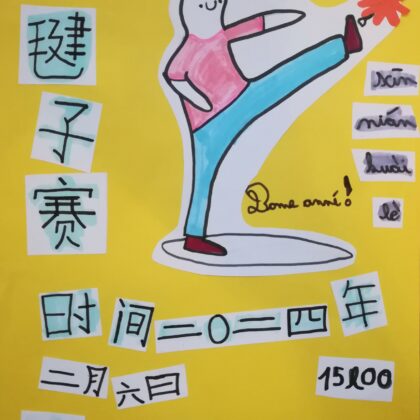 毽
子
赛
xīn
nián
kuài
lè
Bonne année!
时间二〇二四年
二月六日
15h00